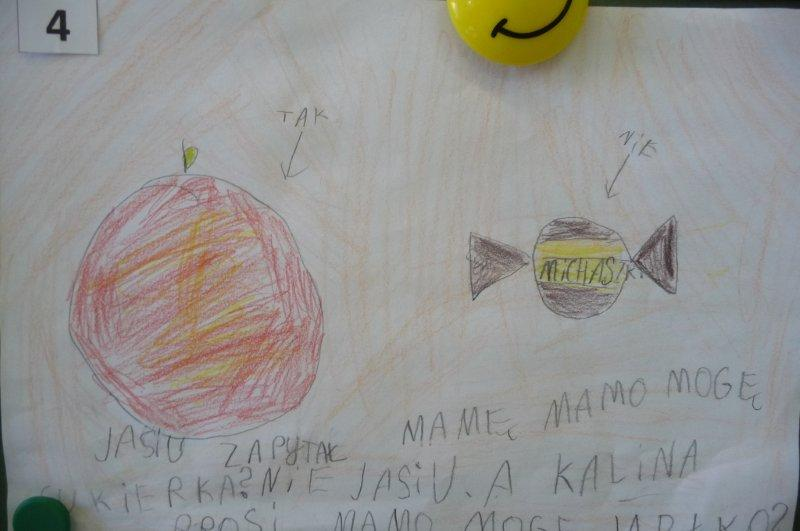 4
TAK
NiE
MiCHASZKi
JAŚIU ZAPYTAŁ MAMĘ MAMO MOGĘ
CUKiERKA? NiE JAŚiU. A KALiNA
PROSi MAMO MOGĘ JABŁKO?